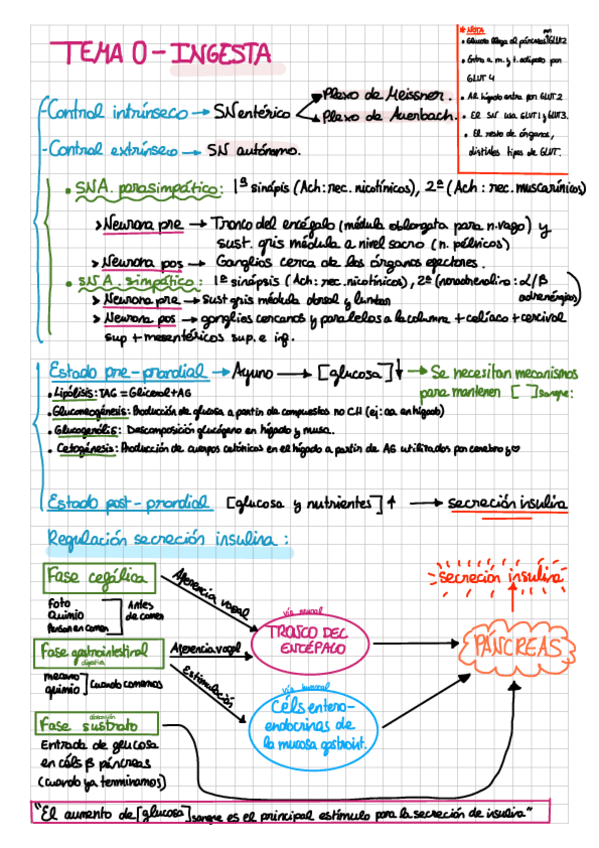 TEMA 0 - INGESTA
* NOTA
• Glucosa llega al páncreas por GLUT2
• Entra a m. y t. adiposo por GLUT 4
• Al hígado entra por GLUT 2
• El SN usa GLUT1 y GLUT3.
• El resto de órganos, distintos tipos de GLUT.
- Control intrínseco → SN entérico
Plexo de Meissner.
Plexo de Auerbach.
- Control extrínseco → SN autónomo.
• SNA. parasimpático: 1ª sinápis (Ach: rec. nicotínicos), 2ª (Ach: rec. muscarínicos)
> Neurona pre → Tronco del encéfalo (médula oblongata para n. vago) y
sust. gris médula a nivel sacro (n. pélvicos)
> Neurona pos → Ganglios cerca de los órganos efectores.
• SNA. simpático: 1ª sinápsis (Ach: rec. nicotínicos), 2ª (noradrenalina: α/β
adrenérgicos)
> Neurona pre → Sust gris médula dorsal y lumbar
> Neurona pos → ganglios cercanos y paralelos a la columna + celíaco + cervical
sup + mesentéricos sup. e inf.
Estado pre-prandial → Ayuno → [glucosa] ↓ → Se necesitan mecanismos
para mantener [ ] sangre:
• Lipólisis: TAG = Glicerol + AG
• Gluconeogénesis: Producción de glucosa a partir de compuestos no CH (ej: aa en hígado)
• Glucogenólisis: Descomposición glucógeno en hígado y musc.
• Cetogénesis: Producción de cuerpos cetónicos en el hígado a partir de AG utilizados por cerebro y ♡
Estado post-prandial [glucosa y nutrientes] ↑ → secreción insulina
Regulación secreción insulina:
Fase cefálica
Aferencia vagal
foto
Quimio
Piensan en comer
Antes de comer
Fase gastrointestinal
digestiva
Aferencia vagal
Estimulación
mecano
quimio
Cuando comemos
Fase sustrato
absorción
Entrada de glucosa
en céls β páncreas
(cuando ya terminamos)
vía neural
TRONCO DEL
ENCÉFALO
vía humoral
Céls entero-
endocrinas de
la mucosa gastroint.
secreción insulina
PÁNCREAS
"El aumento de [glucosa] sangre es el principal estímulo para la secreción de insulina"